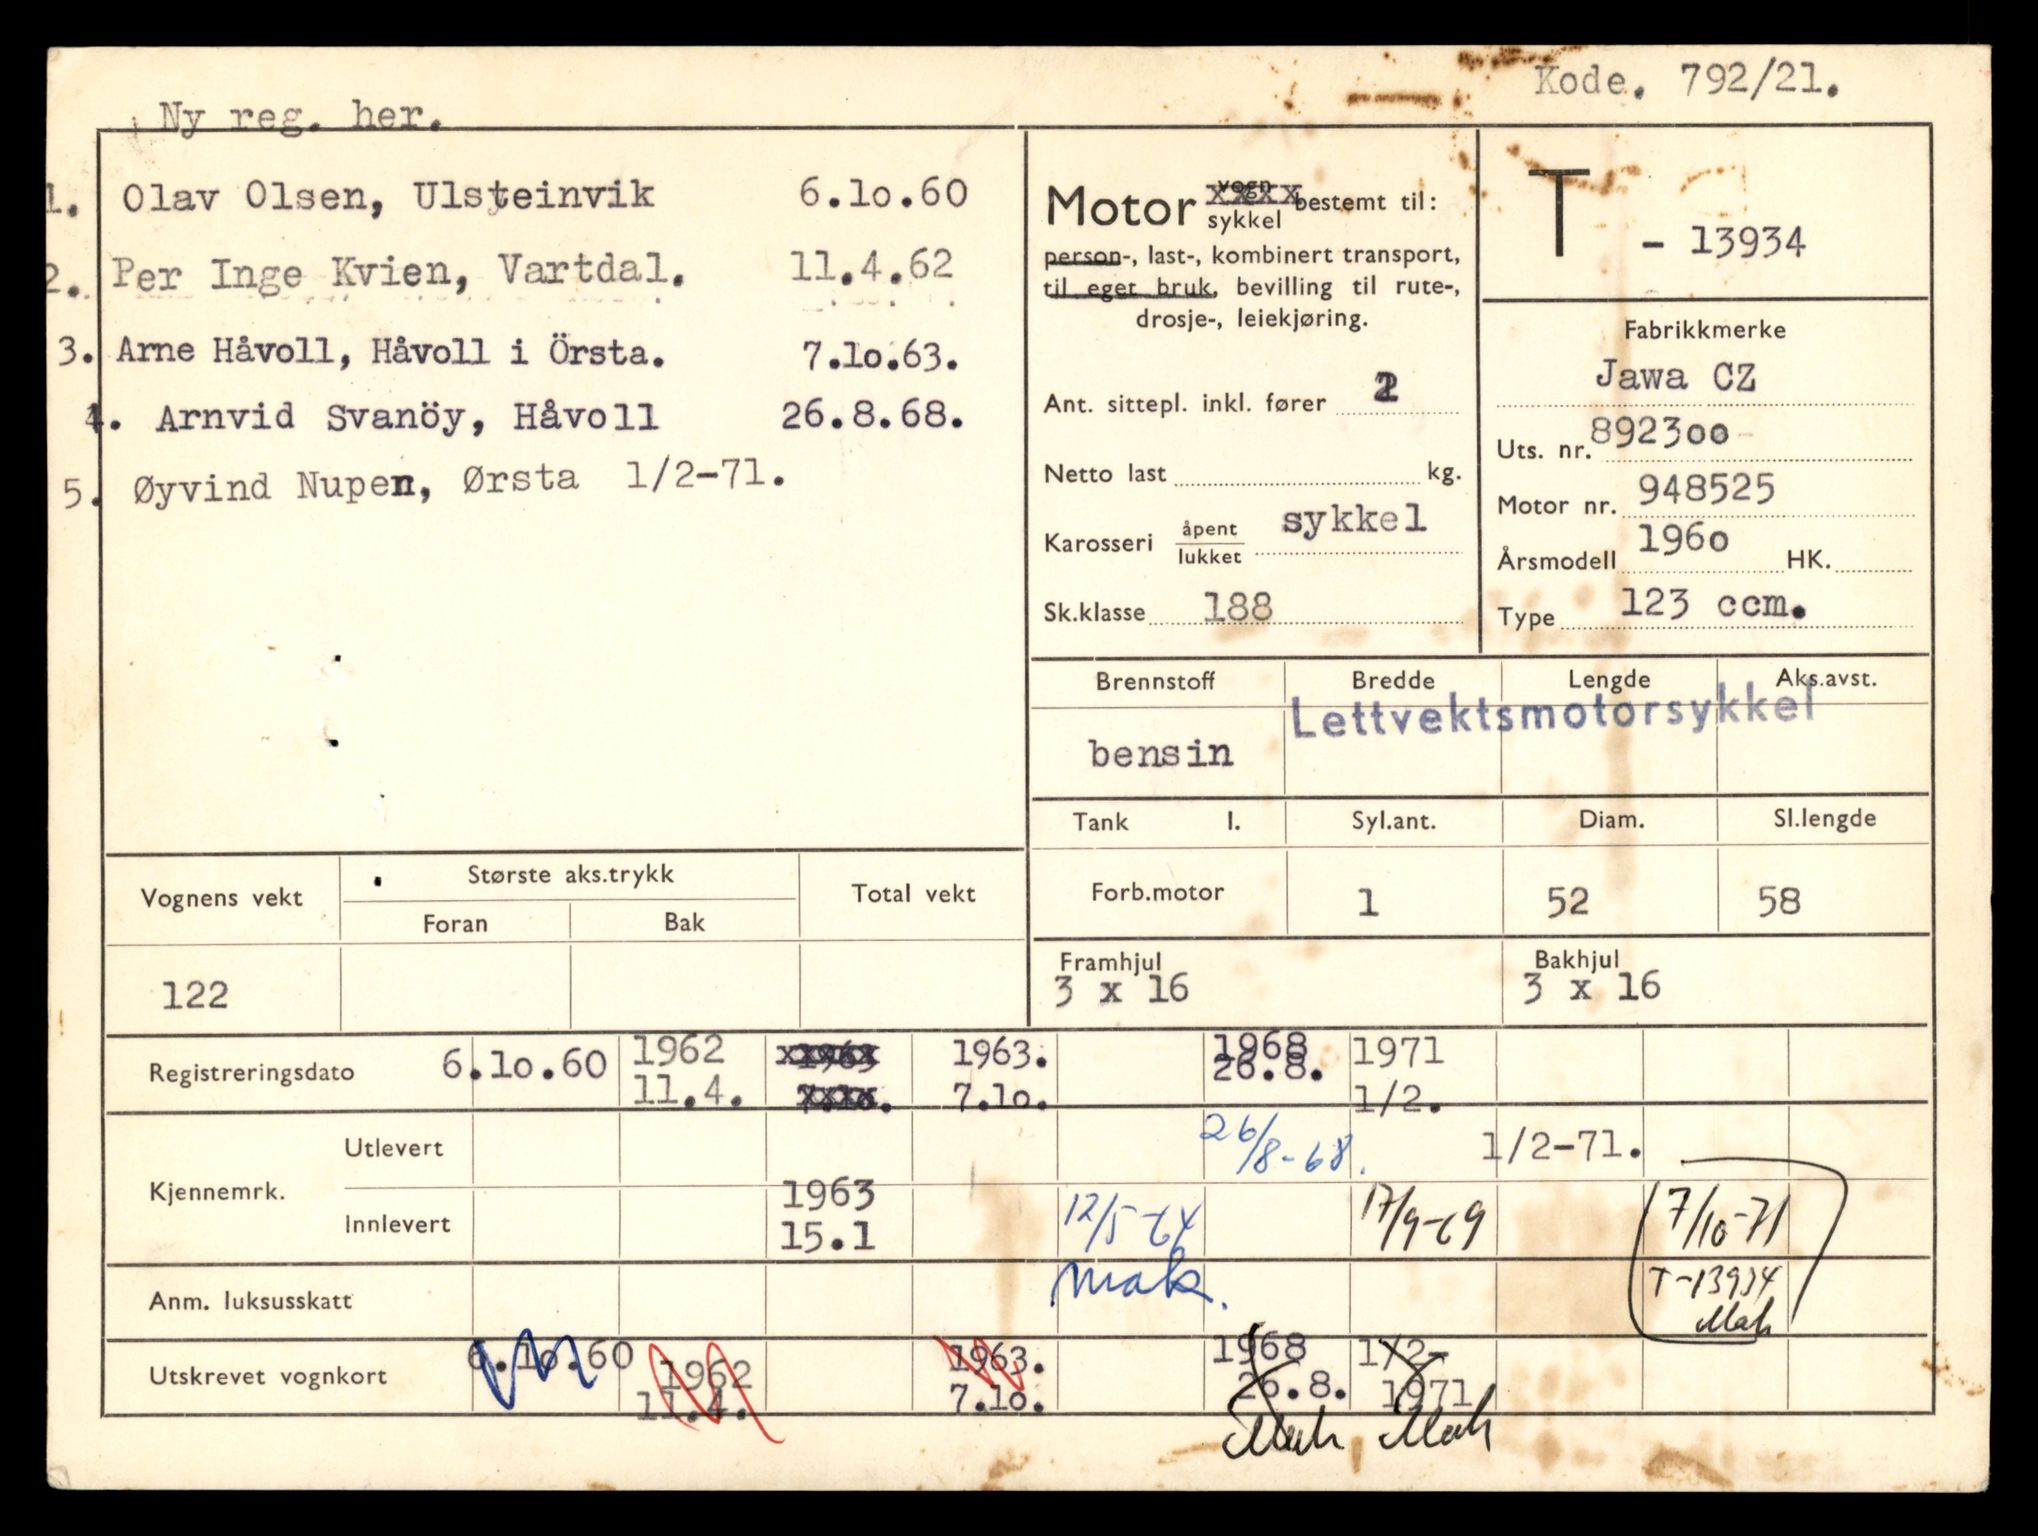 Kode. 792/21.
Ny reg. her.
1. Olav Olsen, Ulsteinvik 6.1o.60
2. Per Inge Kvien, Vartdal. 11.4.62
3. Arne Håvoll, Håvoll i Örsta. 7.1o.63.
4. Arnvid Svanöy, Håvoll 26.8.68.
5. Øyvind Nupen, Ørsta 1/2-71.
Motor vogn sykkel bestemt til:
person-, last-, kombinert transport,
til eget bruk, bevilling til rute-,
drosje-, leiekjøring.
Ant. sittepl. inkl. fører 2
Netto last kg.
Karosseri åpent lukket sykkel
Sk.klasse 188
T - 13934
Fabrikkmerke
Jawa CZ
Uts. nr. 8923oo
Motor nr. 948525
Årsmodell 196o HK.
Type 123 ccm.
Brennstoff Bredde Lengde Aks.avst.
Lettvektsmotorsykkel
bensin
Tank l. Syl.ant. Diam. Sl.lengde
Forb.motor 1 52 58
Framhjul Bakhjul
3 x 16 3 x 16
Vognens vekt Største aks.trykk Total vekt
Foran Bak
122
Registreringsdato 6.1o.60 1962 1963 1963. 1968 1971
11.4. 7.1o. 7.1o. 26.8. 1/2.
Kjennemrk. Utlevert 26/8-68. 1/2-71.
Innlevert 1963 15.1 12/5-64 17/9-69 17/10-71
mak. T-13934
Mak
Anm. luksusskatt
Utskrevet vognkort 6.1o.60 1962 1963. 1968 1/2-
11.4. 7.1o. 26.8. 1971
Mak Mak